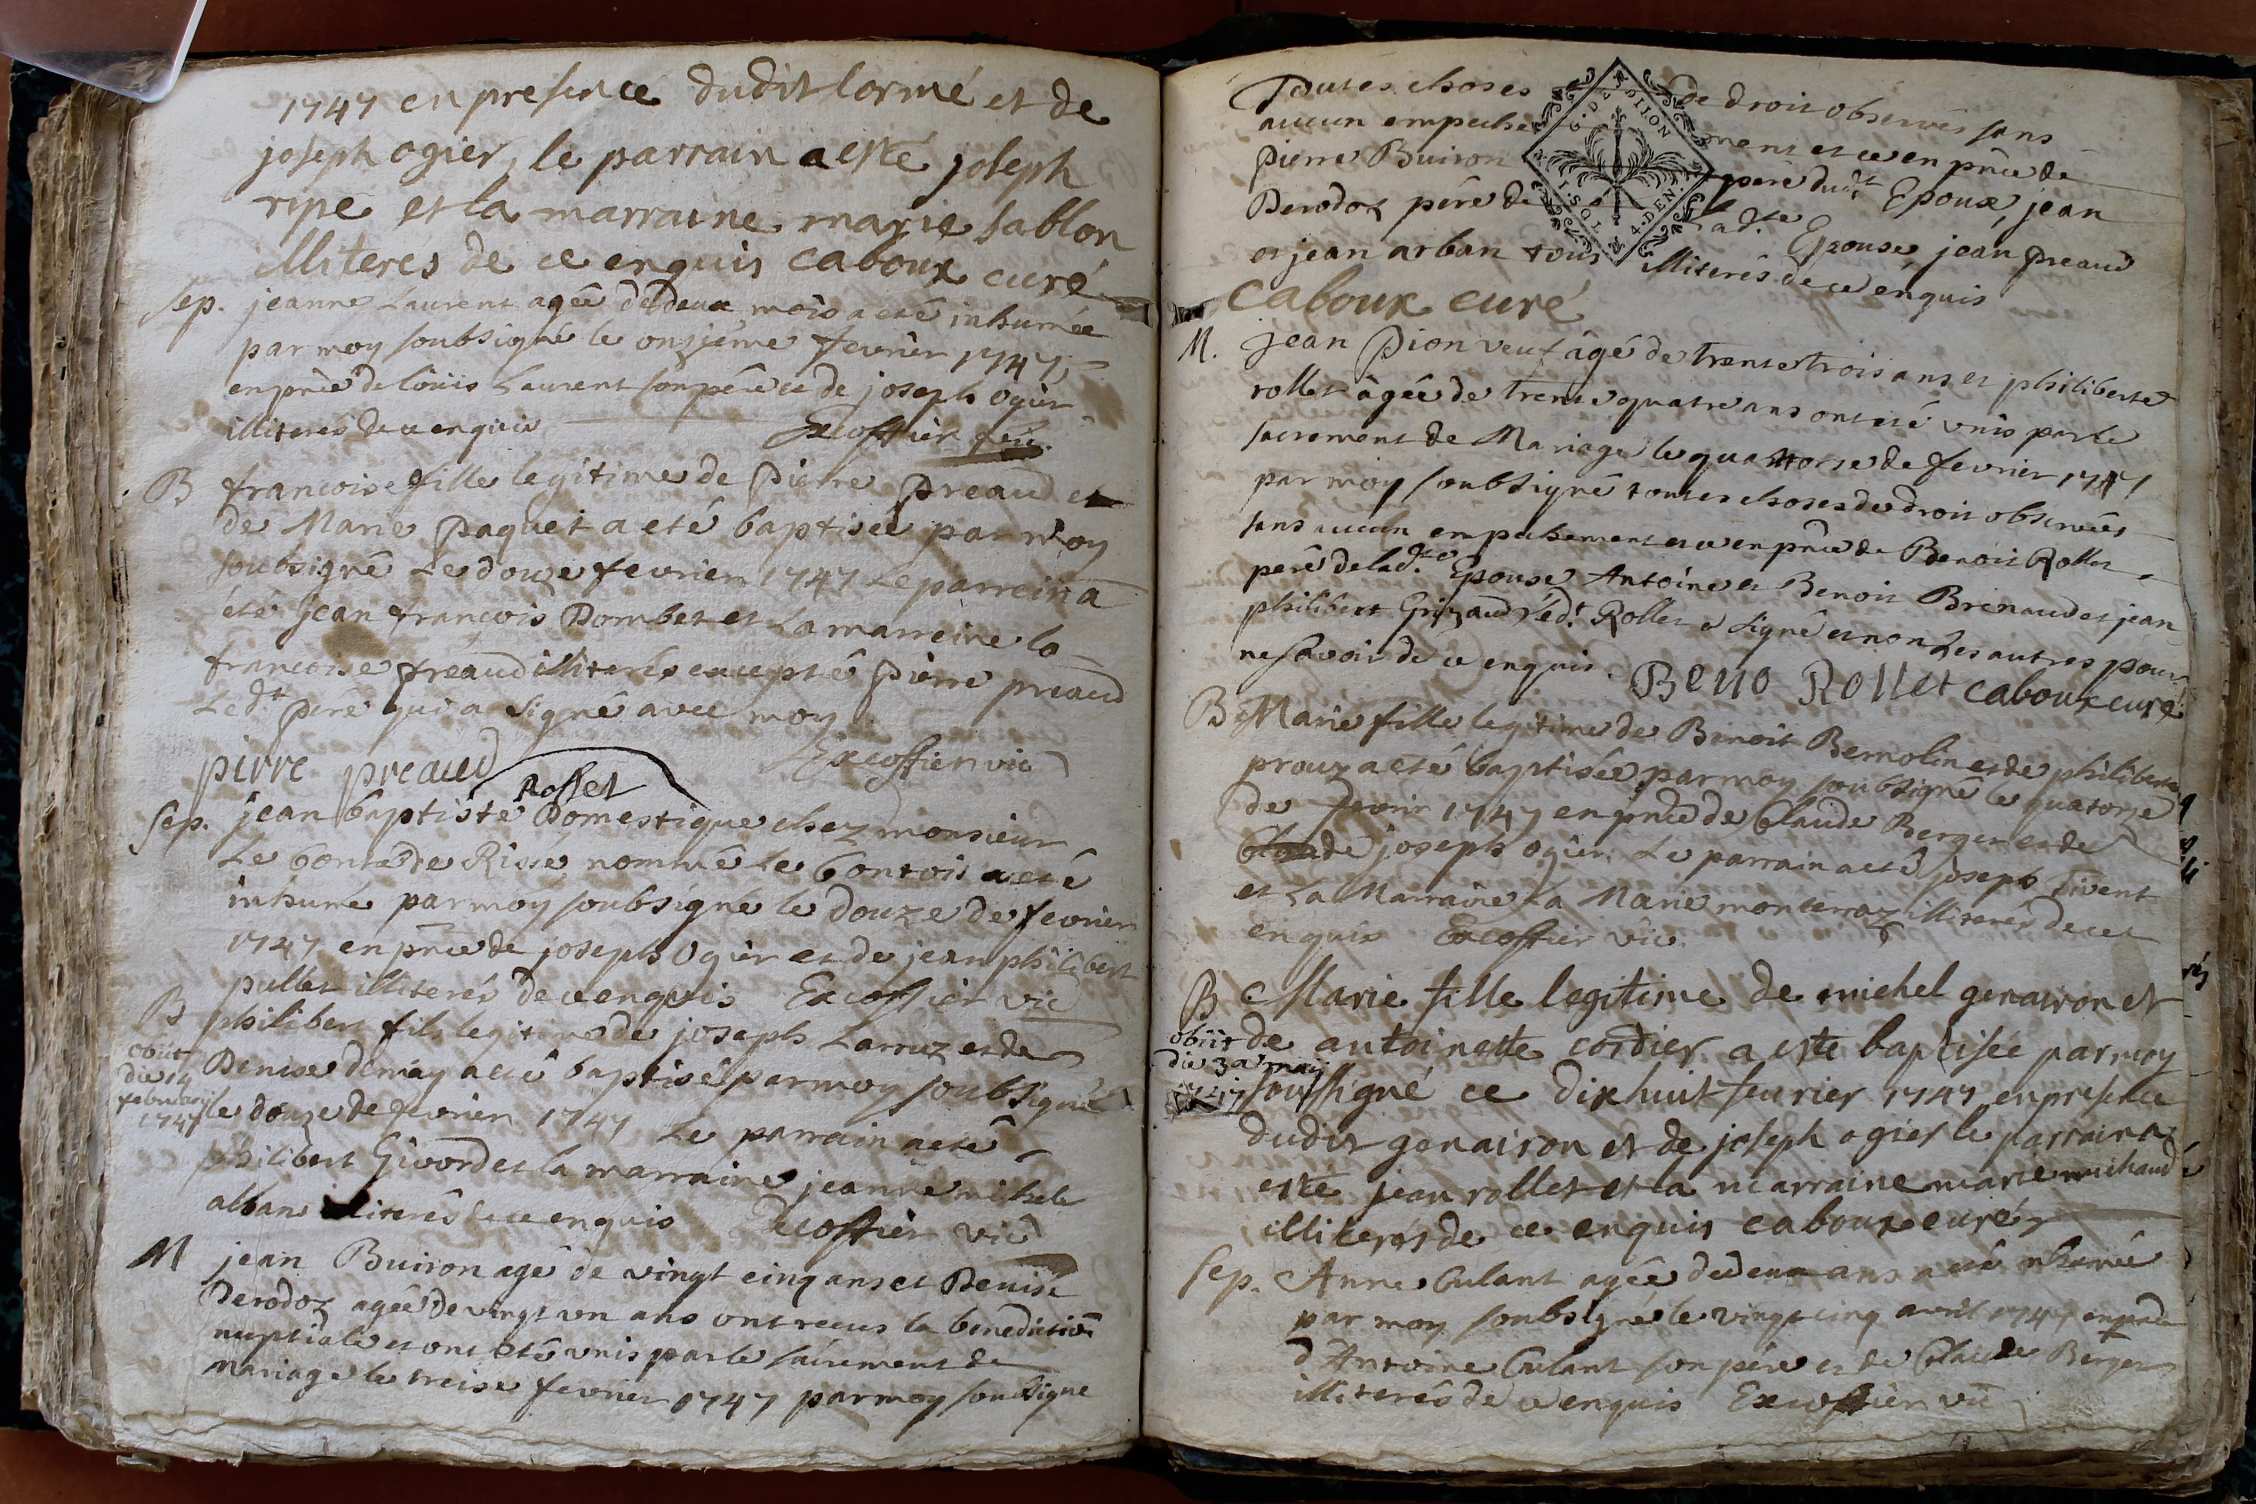 1747 en presence dudit lormé et de
joseph ogier, le parrain a esté joseph
ripe et la marraine marie sablon
illiterés de ce enquis caboux curé
Sep. jeanne Laurent agée de deux mois a eté inhumée
par moy soubsigné le onzieme fevrier 1747
en pñce de loüis Laurent son pére et de joseph Ogier
illiterés de ce enquis Excoffier vic
B francoise fille legitime de Pierre Preaud et
de Marie Paquet a eté baptisée par moy
soubsigné Le douze fevrier 1747 Le parrein a
été jean françois Dombet et La marreine la
francoise preaud illiterés excepté Pierre preaud
Ledt pere qui a signé avec moy
pierre preaud Excoffier vic
Rosset
Sep. jean baptiste Domestique chez monsieur
Le Comte de Rissé nommé le Contois a eté
inhumé par moy soubsigné le douze de fevrier
1747 en pñce de joseph Ogier et de jean philibert
pullet illiterés de ce enquis Excoffier vic
B philibert fils legitime de joseph Larruz et de
obiit
die 14
februarii
1747
Denise demay a eté baptisé par moy soubsigné
le douze de fevrier 1747 Le parrain a eté
philibert Givord et la marraine jeanne michele
alban illiterés de ce enquis Excoffier vic
M jean Buiron agé de vingt cinq ans et Denise
Derodoz agée de vingt un ans ont recus la benediction
nuptiale et ont été unis par le sacrement de
Mariage le treise fevrier 1747 par moy soubsigné
Toutes choses de droit observés sans
aucun empechement et ce en pñce de
Pierre Buiron pere dudt Epoux, jean
Derodoz pére de ladte Epouse, jean preaud
et jean arban tous illiterés de ce enquis
Caboux curé
G. DE DIJON
1. SOL 4. DEN.
M. jean Pion veuf âgé de trente trois ans et philiberte
rollet âgée de trente quatre ans ont eté unis par le
sacrement de Mariage le quattorse de fevrier 1747
par moy soubsigné toutes choses de droit observées
sans aucun empechement et ce en pñce de Benoit Rollet
pere de ladte Epouse Antoine et Benoit Brenaud et jean
philibert Grizaud Ledt Rollet a signé et non Les autres pour
ne sçavoir de ce enquis. Beno Rollet caboux curé
B Marie fille legitime de Benoit Bernolin et de philiberte
prouz a eté baptisée par moy soubsigné le quatorze
de fevrier 1747 en pñce de Claude Berger et de
joseph Ogier Le parrain a eté joseph Tivent
et La Marraine La Marie monterraz illiterés de cet
enquis Excoffier vic
B Marie fille legitime de michel genairon et
obiit
die 3a may
1747
de antoinette cordier a este baptisée par moy
soussigné ce dixhuit fevrier 1747 en presence
dudit genairon et de joseph ogier le parrain a
esté jean rollet et la marraine marie michaud
illiterés de ce enquis caboux curé
Sep. Anne Culant agée de deux ans a eté inhumée
par moy soubsigné le vingt cinq avril 1747 en pñce
d'Antoine Culant son pére et de Claude Berger
illiterés de ce enquis Excoffier vic